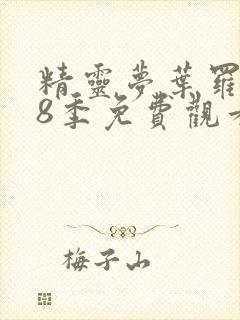 精靈夢葉羅
8季免費觀看
梅子山